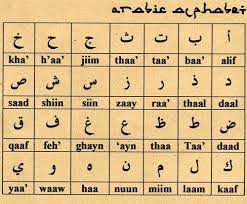 arabic alphabet
أ ب ت ث ج ح خ
kha' h'aa' jiim thaa' taa' baa' alif
د ذ ر ز س ش ص
saad shiin siin zaay raa' thaal daal
ض ط ظ ع غ ف ق
qaaf feh' ghayn 'ayn thaa Taa' daad
ك ل م ن ه و ي
yaa' waaw haa nuun miim laam kaaf